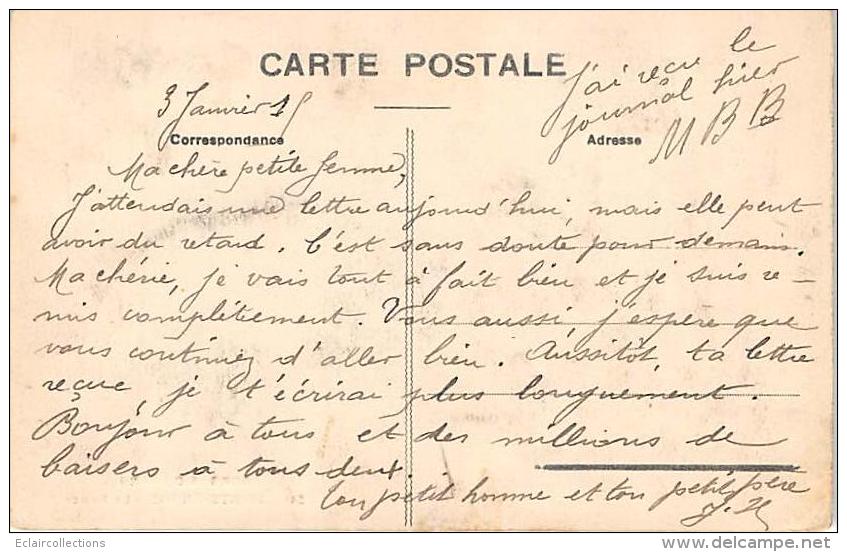 CARTE POSTALE
J'ai reçu le
journal hier
M B B
3 Janvier 15
Correspondance
Adresse
Ma chère petite femme,
J'attendais une lettre aujourd'hui, mais elle peut
avoir du retard. C'est sans doute pour demain.
Ma chérie, je vais tout à fait bien et je suis re-
mis complétement. Vous aussi j'espère que
vous continuez d'aller bien. Aussitôt ta lettre
reçue, je t'écrirai plus longuement.
Bonjour à tous et des millions de
baisers à tous deux.
ton petit homme et ton petit père
Eclaircollections
www.delcampe.net